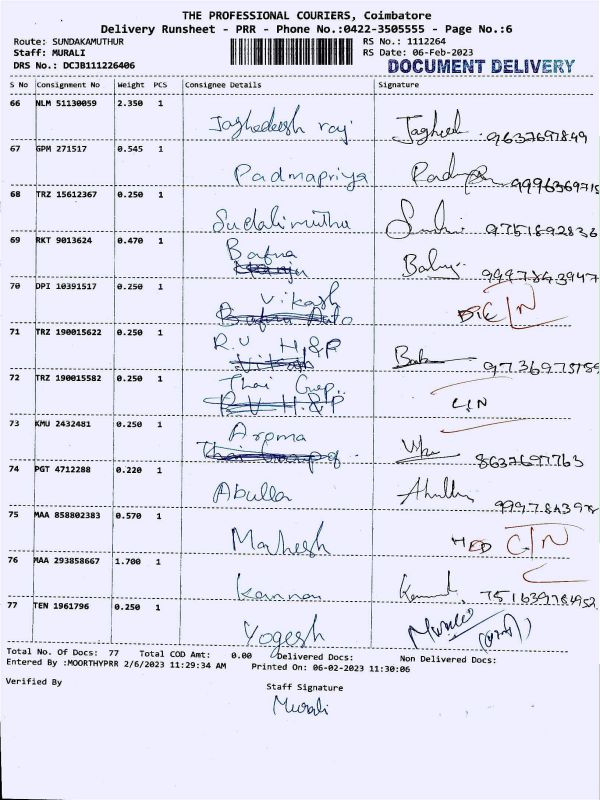 THE PROFESSIONAL COURIERS, Coimbatore
Delivery Runsheet - PRR - Phone No.:0422-3505555 - Page No.:6
Route: SUNDAKAMUTHUR RS No.: 1112264
Staff: MURALI RS Date: 06-Feb-2023
DRS No.: DCJB111226406 DOCUMENT DELIVERY
S No Consignment No Weight PCS Consignee Details Signature
66 NLM 51130059 2.350 1
Jaghedeesh raj 9637697849
67 GPM 271517 0.545 1
Padmapriya 9996369715
68 TRZ 15612367 0.250 1
Sudalimuthu 9751892836
69 RKT 9013624 0.470 1
Bafna 9997843947
70 DPI 10391517 0.250 1
Vikash
71 TRZ 190015622 0.250 1
R.V H&P 9736975159
72 TRZ 190015582 0.250 1
Thai
73 KMU 2432481 0.250 1
Aroma 8637697763
74 PGT 4712288 0.220 1
Abulla 999784397
75 MAA 858802383 0.570 1
Mahesh
76 MAA 293858667 1.700 1
Kannan
77 TEN 1961796 0.250 1
Yogesh
Total No. Of Docs: 77 Total COD Amt: 0.00 Delivered Docs: Non Delivered Docs:
Entered By :MOORTHYPRR 2/6/2023 11:29:34 AM Printed On: 06-02-2023 11:30:06
Verified By
Staff Signature
Murali